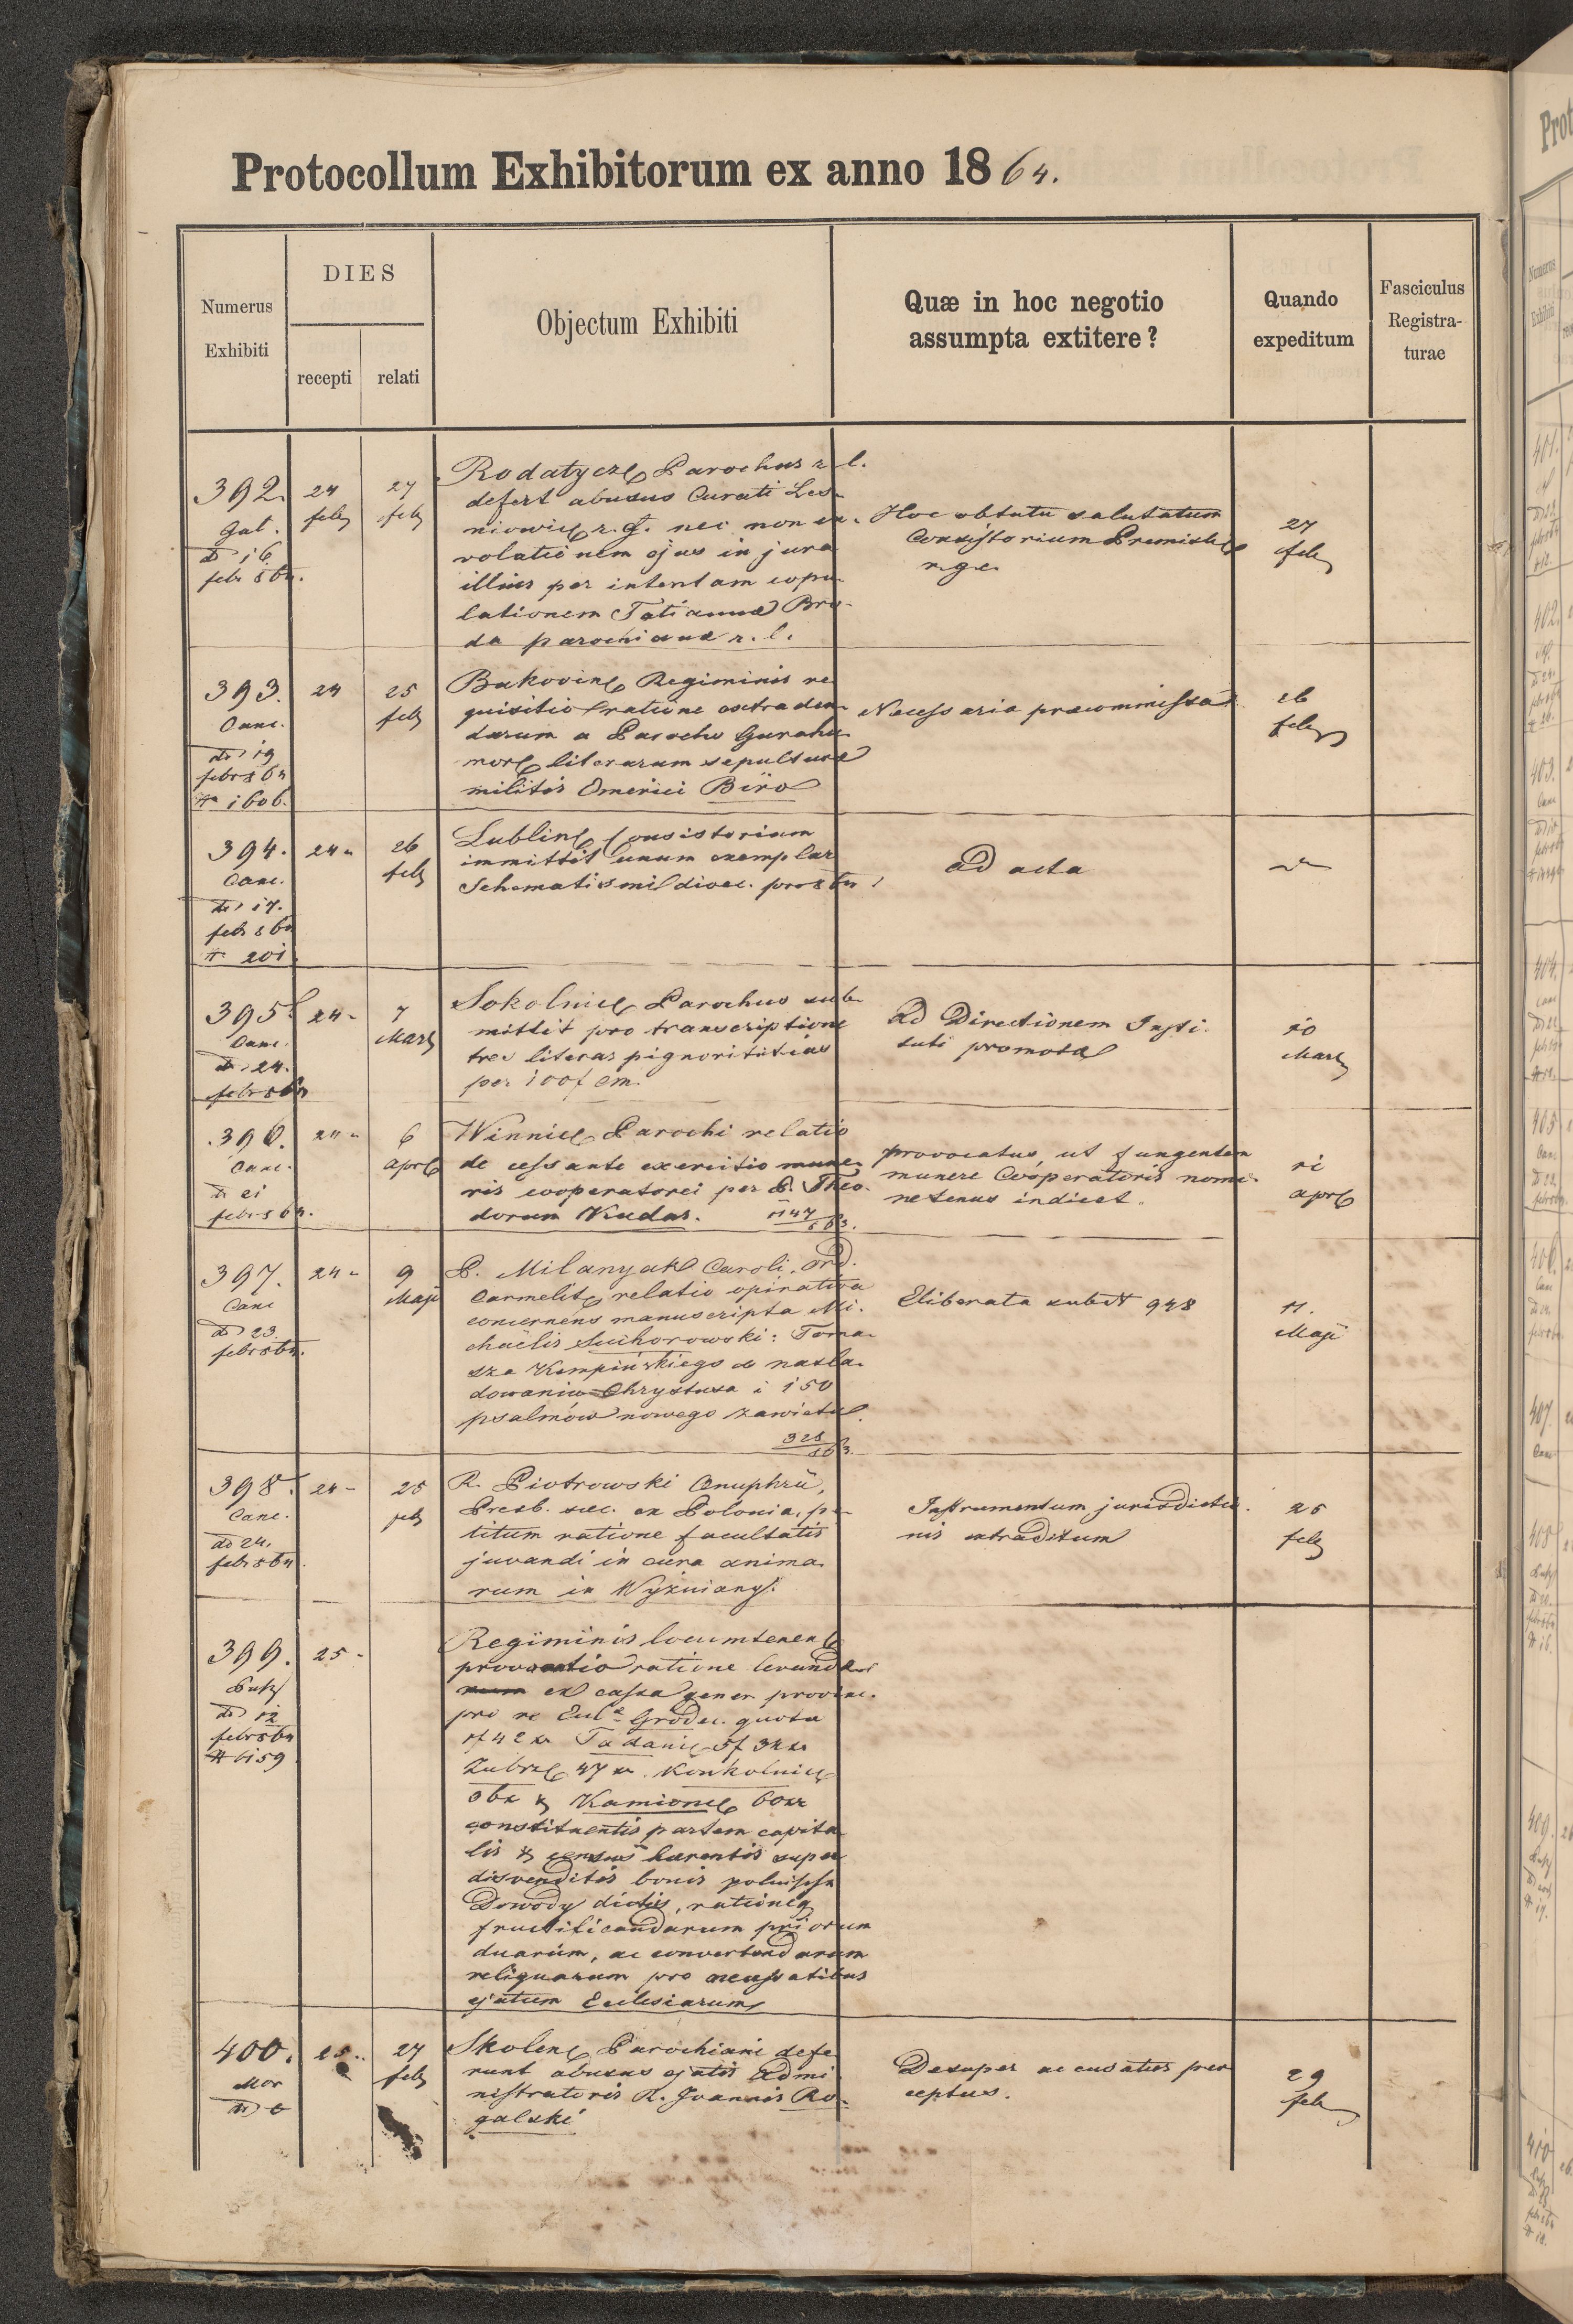 Protocollum Exhibitorum ex anno 1864.
Numerus
Exhibiti
DIES
recepti
relati
Objectum Exhibiti
Quæ in hoc negotio
assumpta extitere?
Quando
expeditum
Fasciculus
Registra-
turae
392.
Gal.
dd 16
febr 864.
24
feb
27
feb
Rodatycze Parochus r. l.
defert abusus Curati Les-
niowice r. g. nec non in-
volationem ejus in jura
illius per intentam copu-
lationem Tatianae Bro-
da parochianae r. l.
Hoc obtutu salutatum
Consistorium Premisl
r. g. c.
27
feb
393.
Canc.
dd 19
febr 864
N 1606.
24
25
feb
Bukovine Regiminis re-
quisitio ratione extraden-
darum a Parocho Gurahu-
more literarum sepulturae
militis Emerici Biro
Necessaria praeommissa
26
feb
394.
Canc.
dd 17.
febr 864
N 201.
24
26
feb
Lubline Consistorium
immittit unum exemplar
Schematismi dioec. pro 864
ad acta
395.
Canc.
dd 24.
febr 864
24
7
Mart
Sokolnice Parochus sub-
mittit pro transcriptione
tres literas pignoratitias
per 100 f cm.
Ad Directionem Insti-
tuti promotae
10
Mart
396.
Canc.
dd 21
febr 864.
24
6
apr
Winnice Parochi relatio
de cessante exercitio mune-
ris cooperatorei per P. Theo-
dorum Kudas. 1147
863.
provocatus, ut fungentem
munere Cooperatoris nomi-
netenus indicet.
11
apr
397.
Canc
dd 23.
febr 864.
24
9
Maji
P. Milanyak Caroli, Ord.
Carmelit relatio opinativa
concernens manuscripta Mi-
chaelis Suchorowski: Toma-
sza Kempińskiego o nasla-
dowaniu Chrystusa i 150
psalmów nowego zawietu
328
863.
Eliberata sub N 948
11.
Maji
398.
Canc.
dd 24.
febr 864.
24
25
feb
R. Piotrowski Onuphrii,
Presb. saec. ex Polonia, pe-
titum ratione facultatis
juvandi in cura anima-
rum in Wyżniany.
Instrumentum jurisdictio-
nis extraditum
26
feb
399.
dd 12
febr 864
N 6159
25
Regiminis locumtenen
provocatio ratione levand
ex cassa gener. provinc.
pro re Eccl Grodec. quota
Tadanie 5f 32 xr
Zubrze 47 xr. Konkolnice
Kamione 60 xr
constituentis partem capita-
lis & census haerentis super
disvenditis bonis
Dowody dictis, rationeq
fructificandarum priorum
duarum, ac convertendarum
reliquarum pro necessitatibus
ejatum Ecclesiarum
400.
Mor
dd
25
27
feb
Skolene Parochiani defe-
runt abusus ejatis Admi-
nistratoris R. Joannis Ro-
galski
Desuper accusatus per-
ceptus.
29
feb